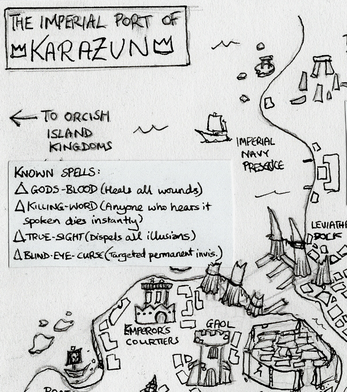 THE IMPERIAL PORT OF
KARAZUN
← TO ORCISH
ISLAND
KINGDOMS
IMPERIAL
NAVY
PRESENCE
KNOWN SPELLS:
△ GODS-BLOOD (Heals all wounds)
△ KILLING-WORD (Anyone who hears it
spoken dies instantly)
△ TRUE-SIGHT (Dispels all illusions)
△ BLIND-EYE-CURSE (Targeted permanent invis.)
LEVIATHA
DOCK
EMPEROR'S
COURTIERS
GAOL